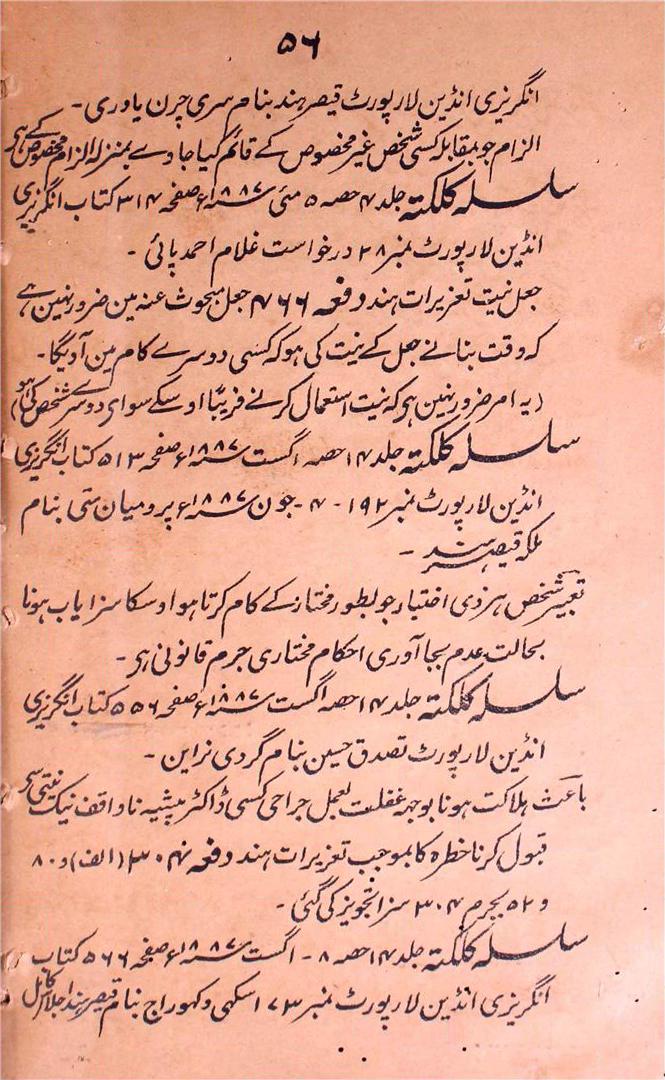 ۵۶
انگریزی انڈین لارپورٹ قیصر ہند بنام سری چرن یاوری ۔
الزام جو بمقابلہ کسی شخص غیر مخصوص کے قائم کیا جاوے بمنزلہ الزام مخصوص کے ہی
سلسلہ کلکتہ جلد ۱۴ حصہ ۵ مئی ۱۸۸۷ء صفحہ ۳۱۴ کتاب انگریزی
انڈین لارپورٹ نمبر ۲۸ درخواست غلام احمد پائی ۔
جعل نیت تعزیرات ہند دفعہ ۴۶۶ جعل مبحوث عنہ مین ضرور نہین ہے
کہ وقت بنانے جعل کے نیت کی ہو کہ کسی دوسرے کام مین آویگا ۔
(یہ امر ضرور نہین ہی کہ نیت استعمال کرنے فریبًا اوسکے سوای دوسرے شخص کی ہو)
سلسلہ کلکتہ جلد ۱۴ حصہ اگست ۱۸۸۷ء صفحہ ۵۱۳ کتاب انگریزی
انڈین لارپورٹ نمبر ۱۹۲ - ۴ - جون ۱۸۸۷ء پرومیان ستی بنام
ملکہ قیصر ہند ۔
تعبیر شخص ہر ذی اختیار جو بطور مختار کے کام کرتا ہو اوسکا سزایاب ہونا
بحالت عدم بجا آوری احکام مختاری جرم قانونی ہی ۔
سلسلہ کلکتہ جلد ۱۴ حصہ اگست ۱۸۸۷ء صفحہ ۵۵۶ کتاب انگریزی
انڈین لارپورٹ تصدق حسین بنام گردی نراین ۔
باعث ہلاکت ہونا بوجہ غفلت بعمل جراحی کسی ڈاکٹر پیشہ ناواقف نیک نیتی سے
قبول کرنا خطرہ کا بموجب تعزیرات ہند دفعہ ۳۰۴ (الف) و ۸۰
و ۵۲ بجرم ۳۰۴ سزا تجویز کی گئی ۔
سلسلہ کلکتہ جلد ۱۴ حصہ ۸ - اگست ۱۸۸۷ء صفحہ ۵۶۶ کتاب
انگریزی انڈین لارپورٹ نمبر ۱۷۳ اسکہی وکہوراج بنام قیصر ہند اجلاس کامل